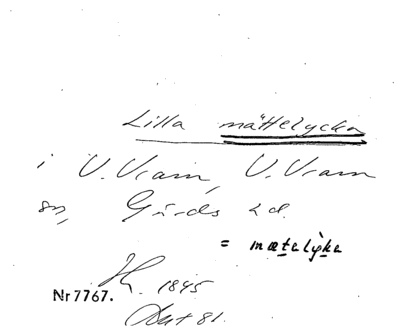 Lilla mättelyckan
i V. Vram, V. Vram
sn, Gärds hd.
= mætalyka
Hr. 1845
Nr 7767.
81.